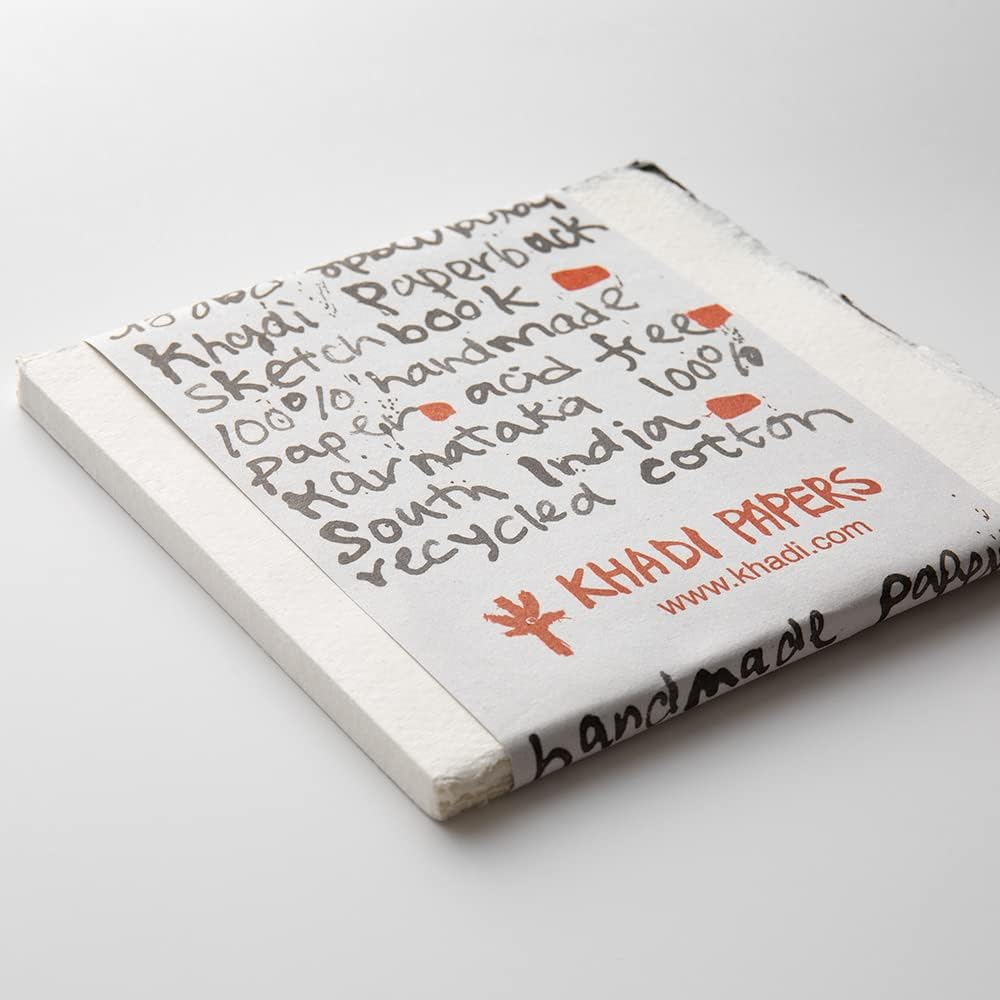 Khadi Paperback
sketchbook
100% handmade
paper acid free
Karnataka 100%
South India
recycled cotton
KHADI PAPERS
www.khadi.com
handmade